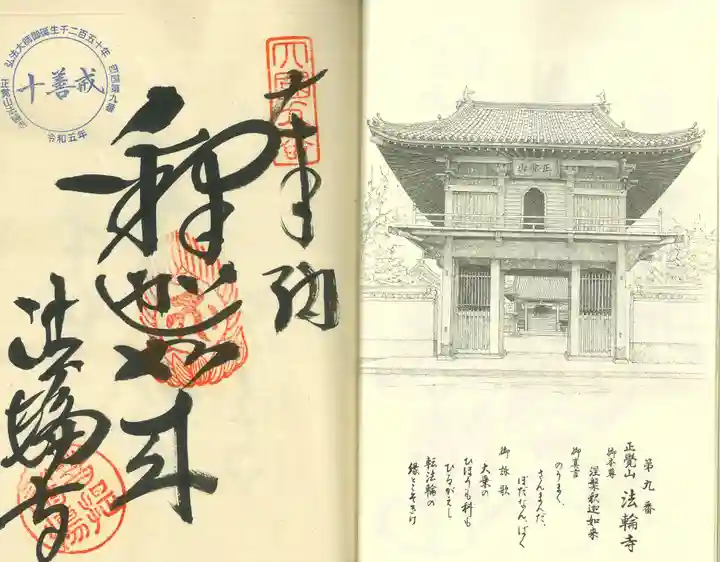 第九番
正覺山 法輪寺
御本尊
涅槃釈迦如来
御真言
のうまく、
さんまんだ、
ぼだなん、ばく
御詠歌
大乗の
ひほうも科も
ひるがえし
転法輪の
縁とこそきけ
正覺山
奉納
釋迦如来
法輪寺
弘法大師御誕生千二百五十年 四国第九番
十善戒
令和五年